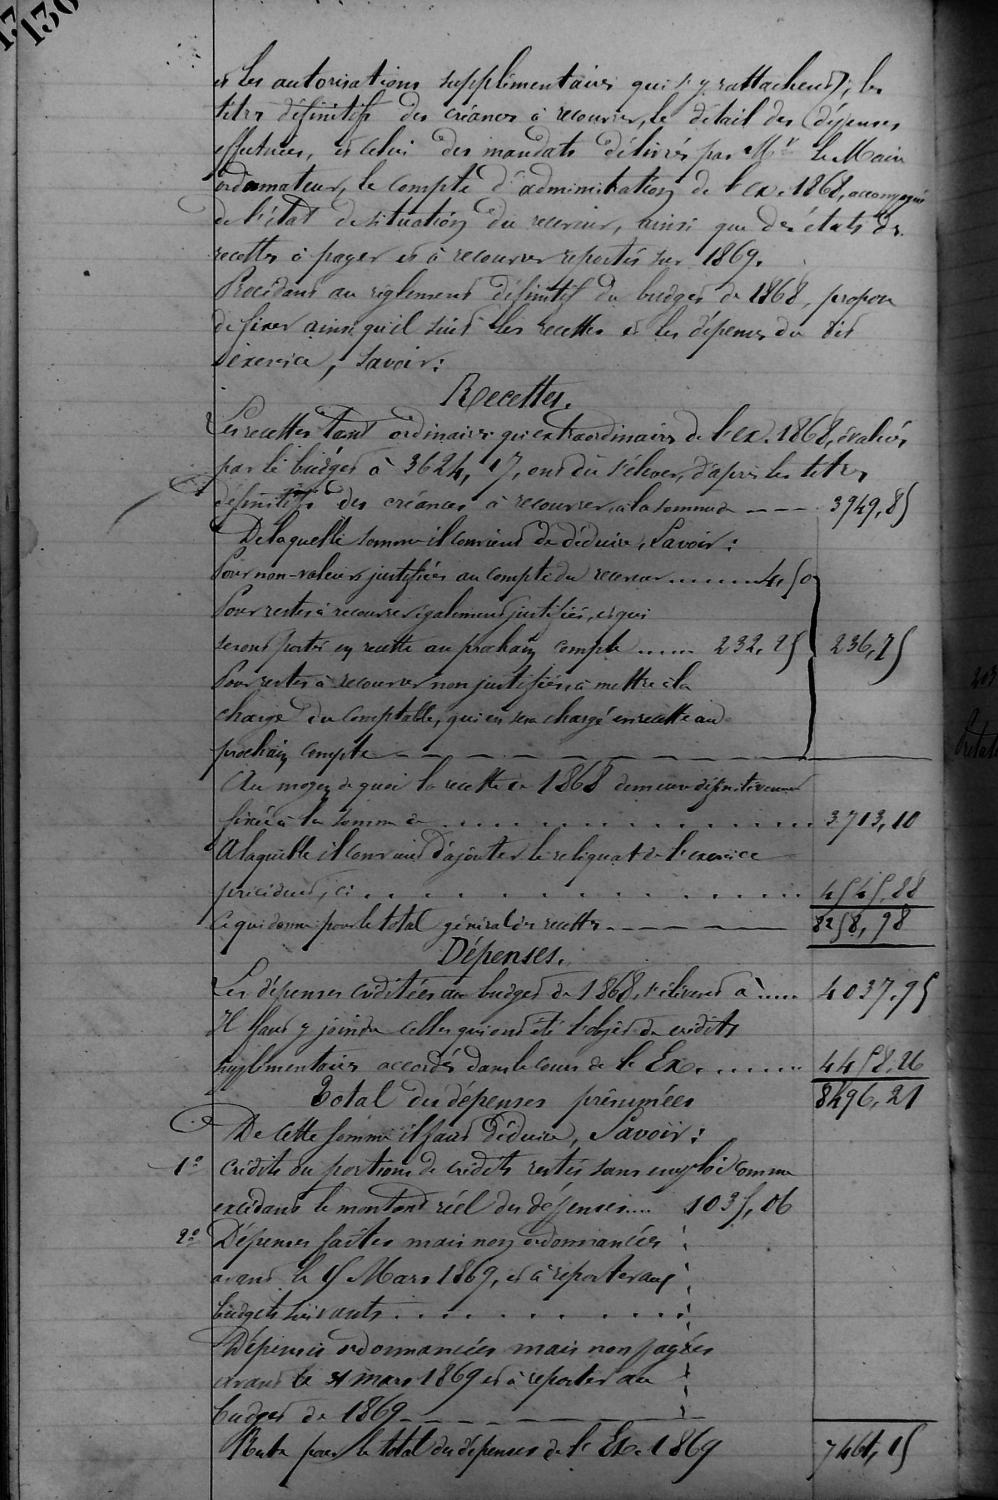 130
et les autorisations supplémentaires qui s'y rattachent; les
titres définitifs des créances à recouvrer, le détail des dépenses
effectuées, et celui des mandats délivrés par Mr le Maire
ordonnateur, le compte d'administration de l'ex. 1868, accompagné
de l'état de situation du receveur, ainsi que des états de
recettes à payer et à recouvrer reportés sur 1869.
Procédant au règlement définitif du budget de 1868, propose
de fixer ainsi qu'il suit les recettes et les dépenses du dit
exercice, savoir:
Recettes.
Les recettes tant ordinaires qu'extraordinaires de l'ex. 1868, évaluées
par le budget à 3624,17, ont dû s'élever, d'après les titres
définitifs des créances à recouvrer, à la somme de --- 3949,85
De laquelle somme il convient de déduire, Savoir:
Pour non-valeurs justifiées au compte du receveur ....... 4,50
Pour restes à recouvrer également justifiés, et qui
seront portés en recette au prochain compte ...... 232,25 236,75
Pour restes à recouvrer non justifiés, à mettre à la
charge du comptable, qui en sera chargé en recette au
prochain compte
Au moyen de quoi la recette de 1868 demeure définitivement
fixée à la somme de ........ 3713,10
A laquelle il convient d'ajouter le reliquat de l'exercice
précédent, ci ........ 4545,88
Ce qui donne pour le total général des recettes ---- 8258,98
Dépenses.
Les dépenses créditées au budget de 1868, s'élèvent à ..... 4037,95
Il faut y joindre celles qui ont été l'objet de crédits
supplémentaires accordés dans le cours de l'Ex. ....... 4458,26
Total des dépenses présumées 8496,21
De cette somme il faut déduire, Savoir:
1° Crédits ou portions de crédits restés sans emploi comme
excédant le montant réel des dépenses.... 1035,06
2° Dépenses faites mais non ordonnancées
avant le 15 Mars 1869, et à reporter aux
budgets suivants ........
Dépenses ordonnancées mais non payées
avant le 31 mars 1869 et à reporter au
budget de 1869
Reste pour le total des dépenses de l'Ex. 1869 7461,15